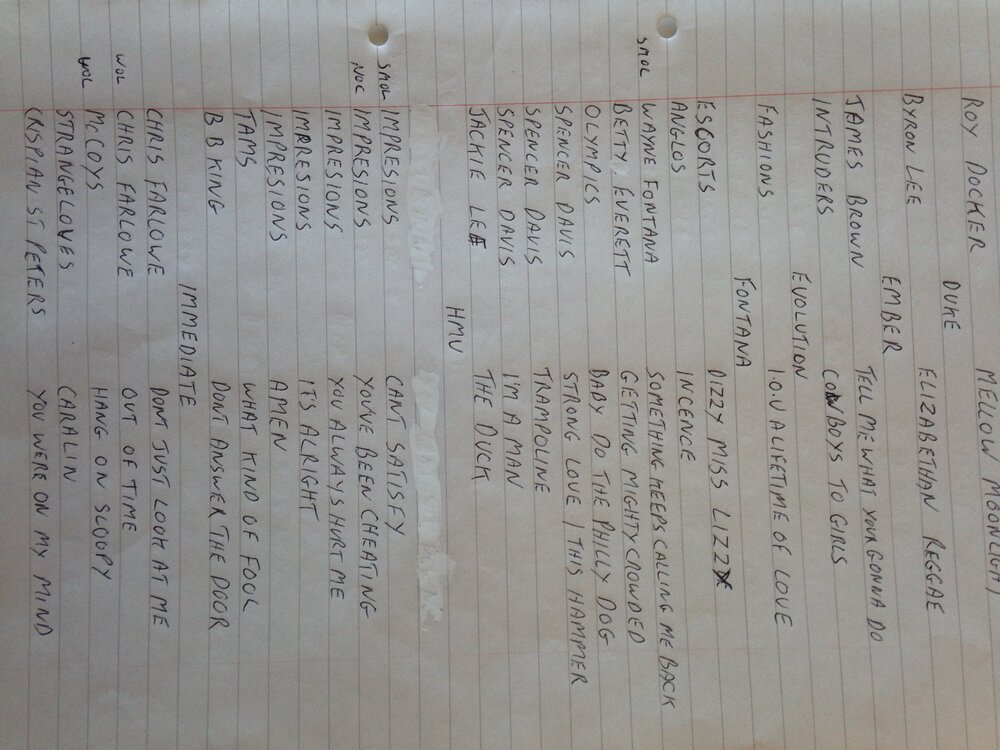 ROY DOCKER MELLOW MOONLIGHT
DUKE
BYRON LEE ELIZABETHAN REGGAE
EMBER
JAMES BROWN TELL ME WHAT YOUR GONNA DO
INTRUDERS COWBOYS TO GIRLS
EVOLUTION
FASHIONS I.O.U A LIFETIME OF LOVE
FONTANA
ESCORTS DIZZY MISS LIZZY
ANGLOS INCENCE
SMOL WAYNE FONTANA SOMETHING KEEPS CALLING ME BACK
BETTY EVERETT GETTING MIGHTY CROWDED
OLYMPICS BABY DO THE PHILLY DOG
SPENCER DAVIS STRONG LOVE / THIS HAMMER
SPENCER DAVIS TRAMPOLINE
SPENCER DAVIS I'M A MAN
JACKIE LEE THE DUCK
HMV
SMOL IMPRESIONS CANT SATISFY
NOC IMPRESIONS YOU'VE BEEN CHEATING
IMPRESIONS YOU ALWAYS HURT ME
IMPRESIONS ITS ALRIGHT
IMPRESIONS AMEN
TAMS WHAT KIND OF FOOL
B B KING DONT ANSWER THE DOOR
IMMEDIATE
CHRIS FARLOWE DONT JUST LOOK AT ME
WOL CHRIS FARLOWE OUT OF TIME
WOL McCOYS HANG ON SLOOPY
STRANGELOVES CARALIN
CRISPIAN ST PETERS YOU WERE ON MY MIND